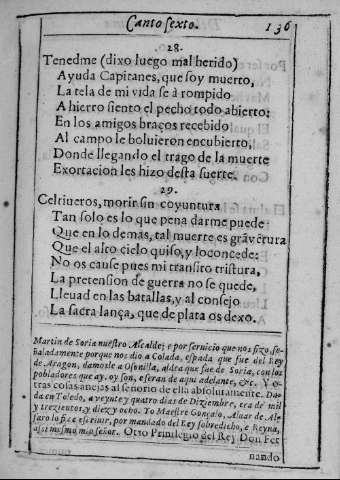 Canto sexto. 136
28.
Tenedme (dixo luego mal herido)
Ayuda Capitanes, que soy muerto,
La tela de mi vida se à rompido
A hierro siento el pecho todo abierto:
En los amigos braços recebido
Al campo le boluieron encubierto,
Donde llegando el trago de la muerte
Exortacion les hizo desta suerte.
29.
Celtiueros, morir sin coyuntura
Tan solo es lo que pena darme puede
Que en lo demàs, tal muerte es graue rura
Que el alto cielo quiso, y lo concede:
No os cause pues mi transito tristura,
La pretension de guerra no se quede,
Lleuad en las batallas, y al consejo
La sacra lança, que de plata os dexo.
Martin de Soria nuestro Alcalde; e por seruicio que nos fizo, se-
ñaladamente porque nos dio a Colada, espada que fue del Rey
de Aragon, damosle a Osonilla, aldea que fue de Soria, con los
pobladores que ay, oy son, e seran de aqui adelante, &c. Y o
tras cosas anejas al señorio de ella absolutamente. Da-
da en Toledo, a veynte y quatro dias de Diziembre, era de mil
y trezientos, y diez y ocho. Yo Maestre Gonçalo, Aluar de Al-
faro lo fize escriuir, por mandado del Rey sobredicho, e Reyna,
assi mismo mio señor. Otro Priuilegio del Rey Don Fer
nando